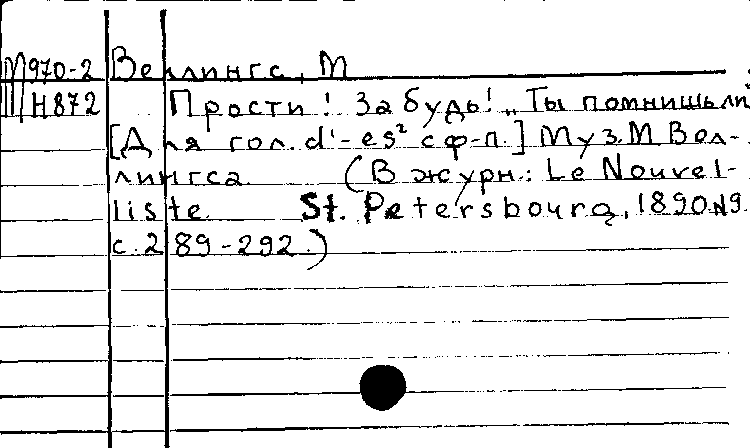 М970-2 Веллингс, М
Н872 Прости! Забудь! „Ты помнишь ли
[Для гол. d'-es² с ф-п.] Муз. М. Вел-
лингса (В журн.: Le Nouvel-
liste St. Petersbourg, 1890 №9
с. 289-292.)